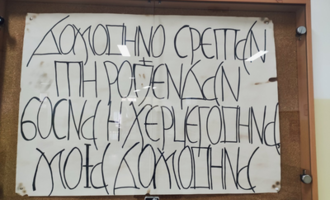 ДОМОВИНО СРЕТАН
ТИ РОЂЕНДАН
БОСНА И ХЕРЦЕГОВИНА
МОЈА ДОМОВИНА